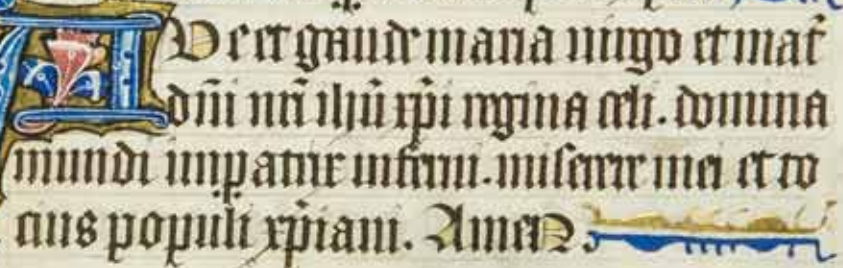 AVe et gaude maria uirgo et mat̃
dñi nr̃i ihũ xp̃i regina celi. domina
mundi imꝑatrix inferni. miserere mei et to
cius populi xp̃iani. Amen.